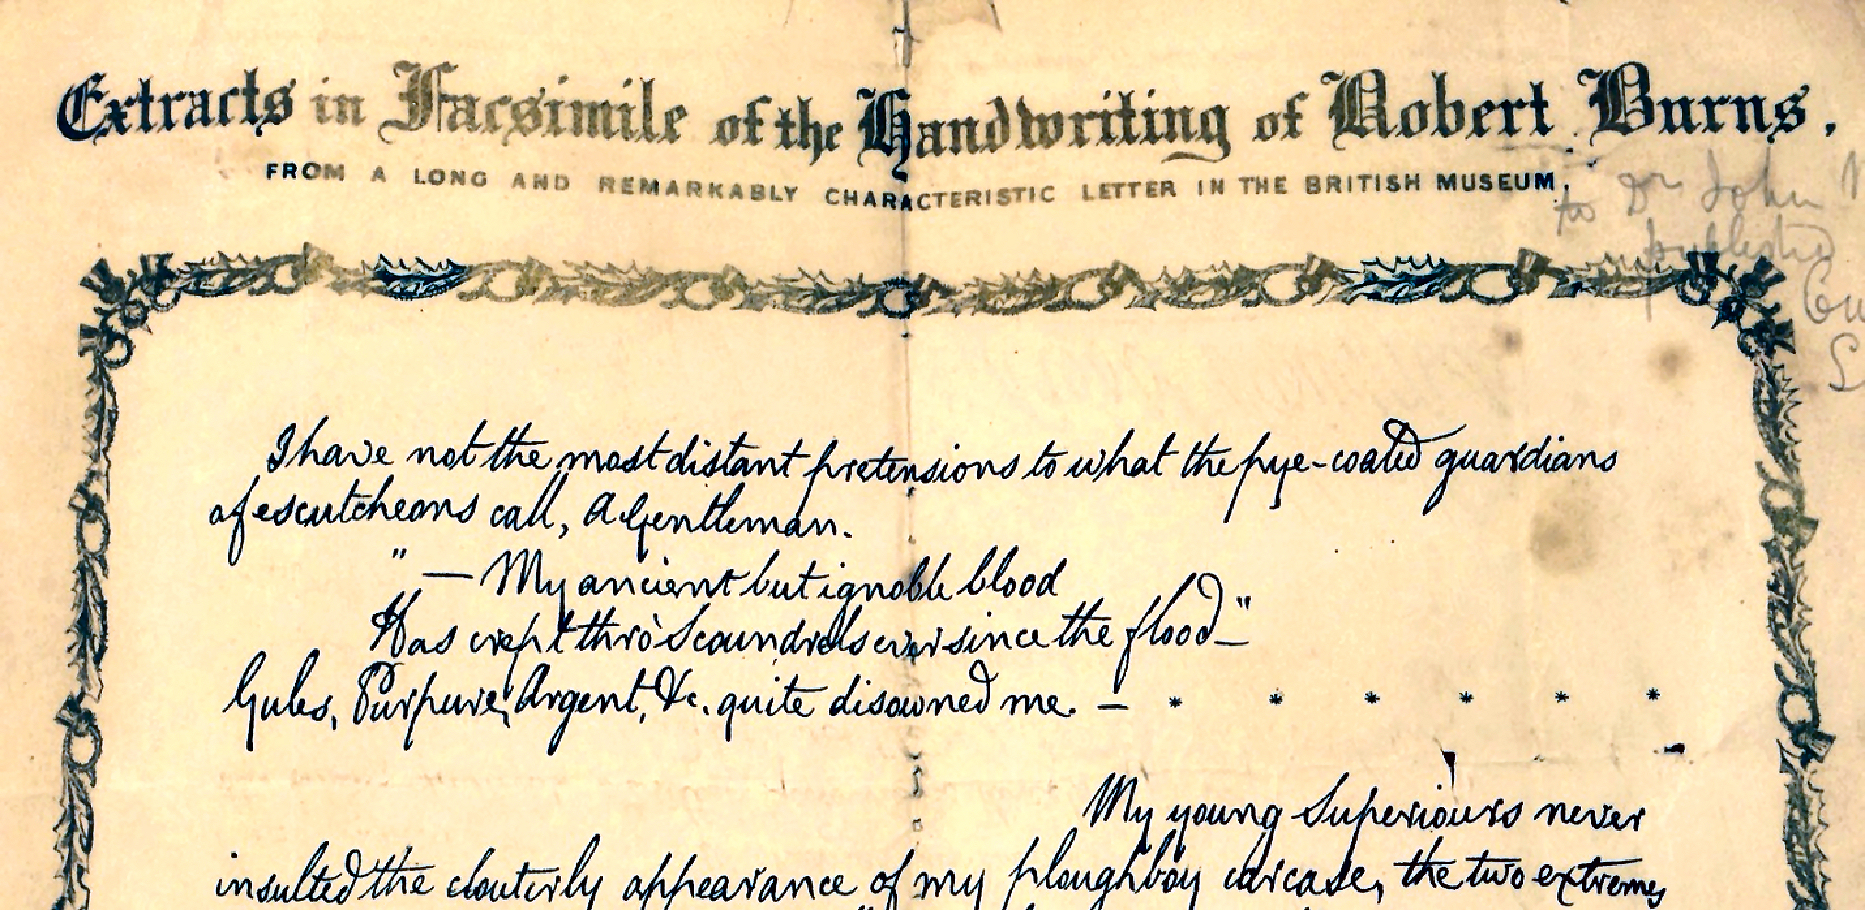 Extracts in Facsimile of the Handwriting of Robert Burns.
FROM A LONG AND REMARKABLY CHARACTERISTIC LETTER IN THE BRITISH MUSEUM.
to Dr John
published
I have not the most distant pretensions to what the pye-coated guardians
of escutcheons call, A Gentleman.
" — My ancient but ignoble blood
Has crept thro' Scoundrels ever since the flood —"
Gules, Purpure, Argent, &c. quite disowned me. — * * * * * *
My young Superiours never
insulted the clouterly appearance of my ploughboy carcase, the two extremes